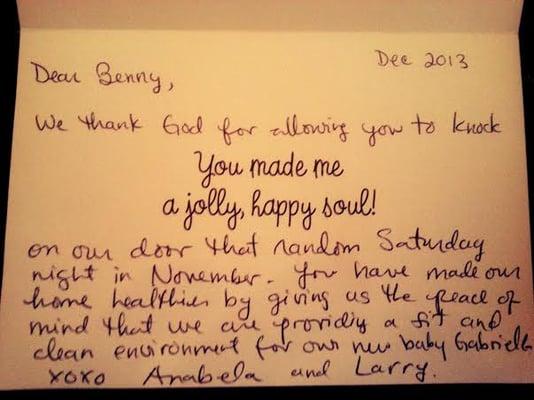 Dec 2013
Dear Benny,
We thank God for allowing you to knock
You made me
a jolly, happy soul!
on our door that random Saturday
night in November. You have made our
home healthier by giving us the peace of
mind that we are providing a fit and
clean environment for our new baby Gabrielle
xoxo Anabela and Larry.